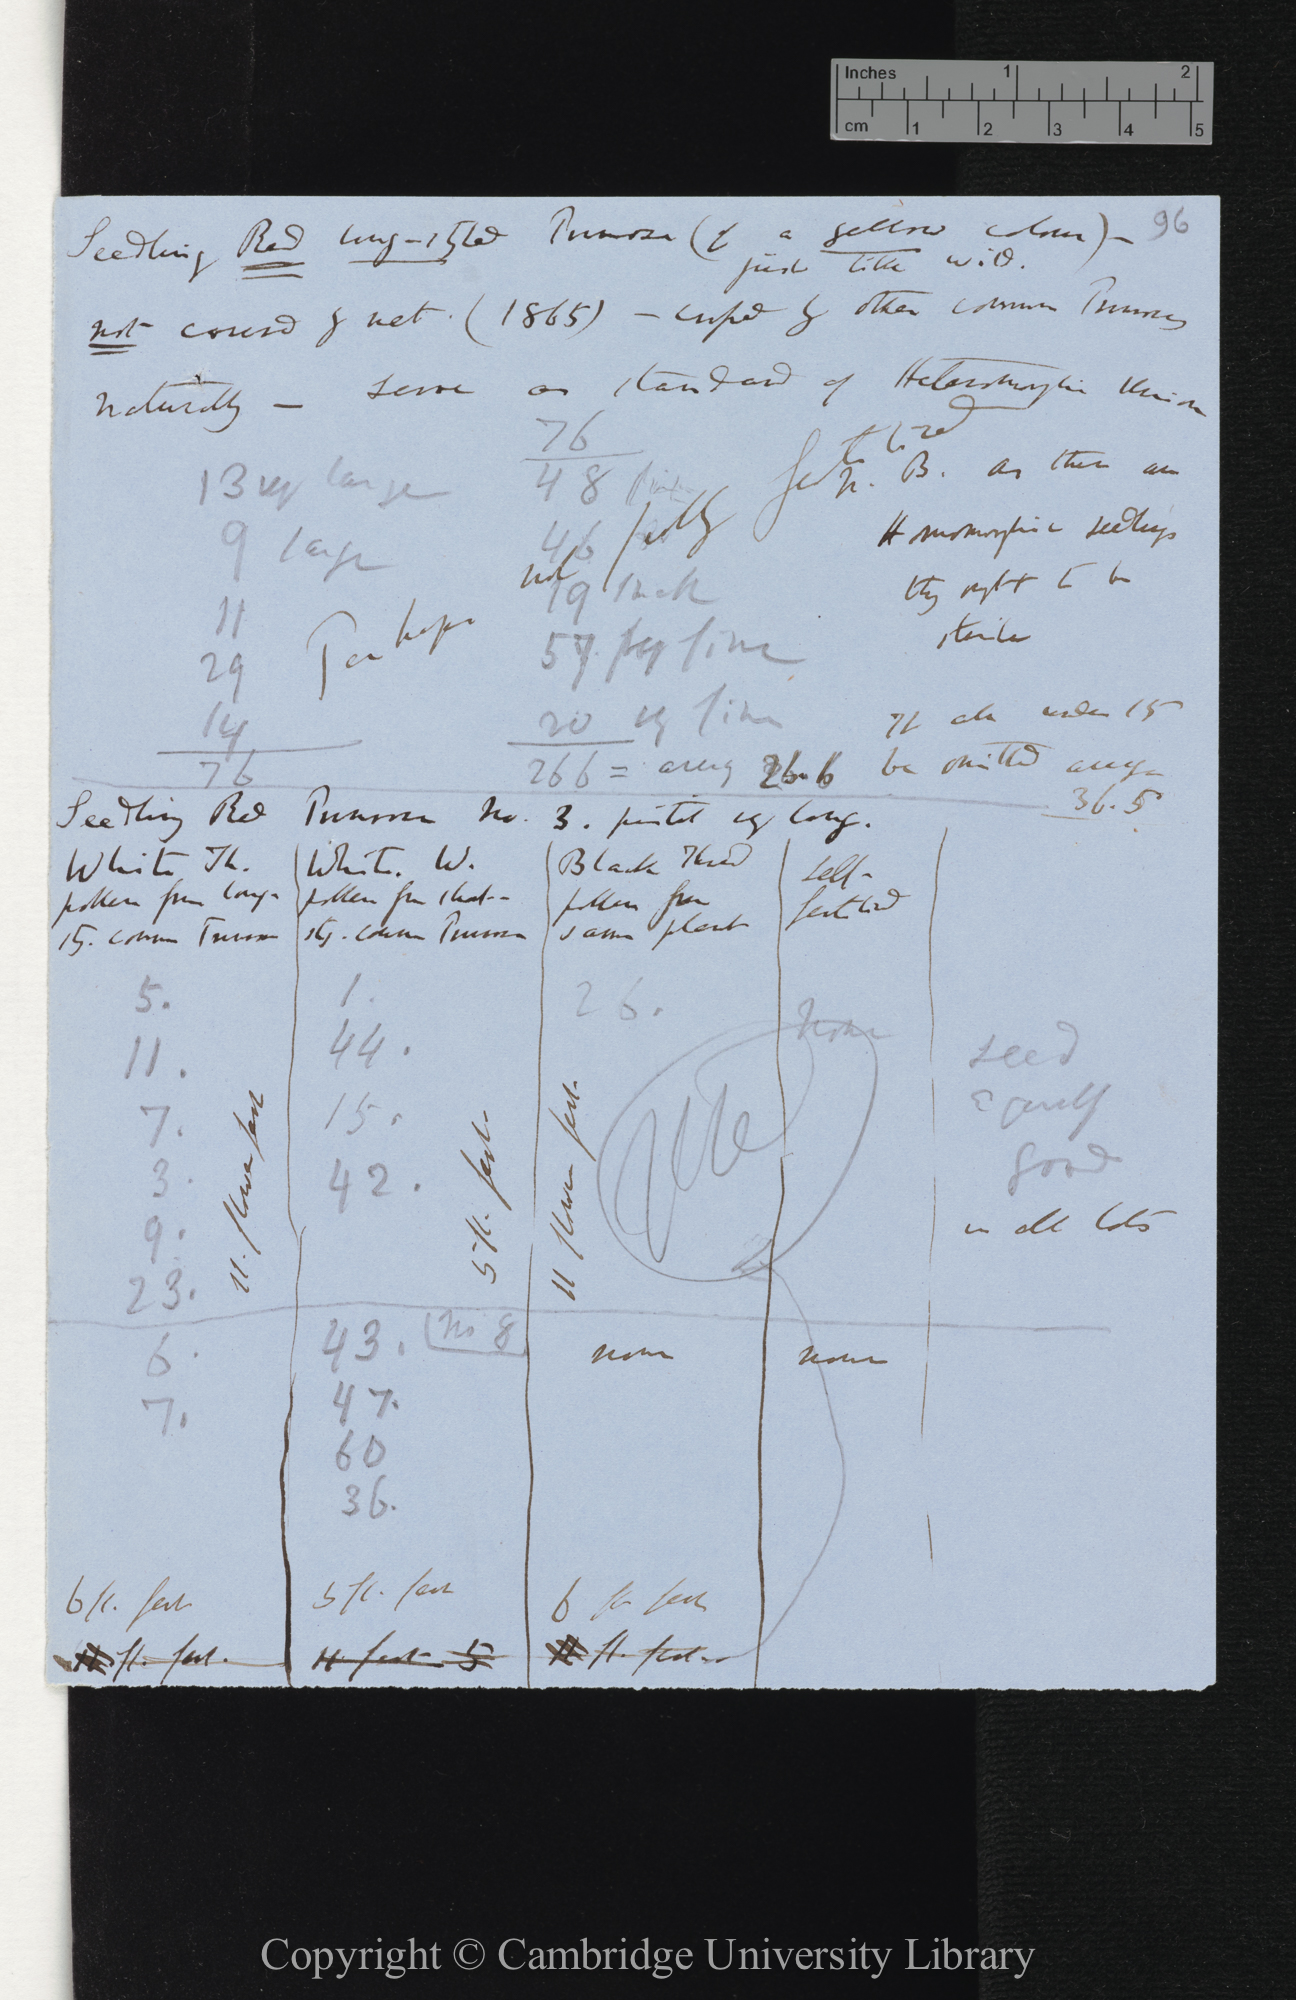 Inches 1 2
cm 1 2 3 4 5
96
Seedling Red long-styled Primrose (of a yellow colour) –
just like wild.
not covered by net. (1865) – crossed by other common Primroses
naturally – serve as standard of Heteromorphic Union
13 very large
9 large
11
29
14
76
76
48 fine
46
19
57 very fine
20 fine
266 = average 26.6
Perhaps not fully fertilized
N.B. as these are
Homomorphic seedlings
they ought to be
sterile
If all under 15
be omitted average
36.5
Seedling Red Primrose No. 3. pistil very long.
White Th.
pollen from long-
sty. common Primrose
5.
11.
7.
3.
9.
23.
11. flowers fert
6.
7.
6 fl. fert
fl. fert.
White. W.
pollen from short-
sty. common Primrose
1.
44.
15.
42.
5 fl. fert.
43. No 8
47.
60
36.
5 fl. fert
fert 5
Black Thread
pollen from
same plant
26.
11 flowers fert.
none
6 fl. fert
fl. fert.
self-
fertilised
none
none
seed
equally
good
in all lots
Copyright © Cambridge University Library